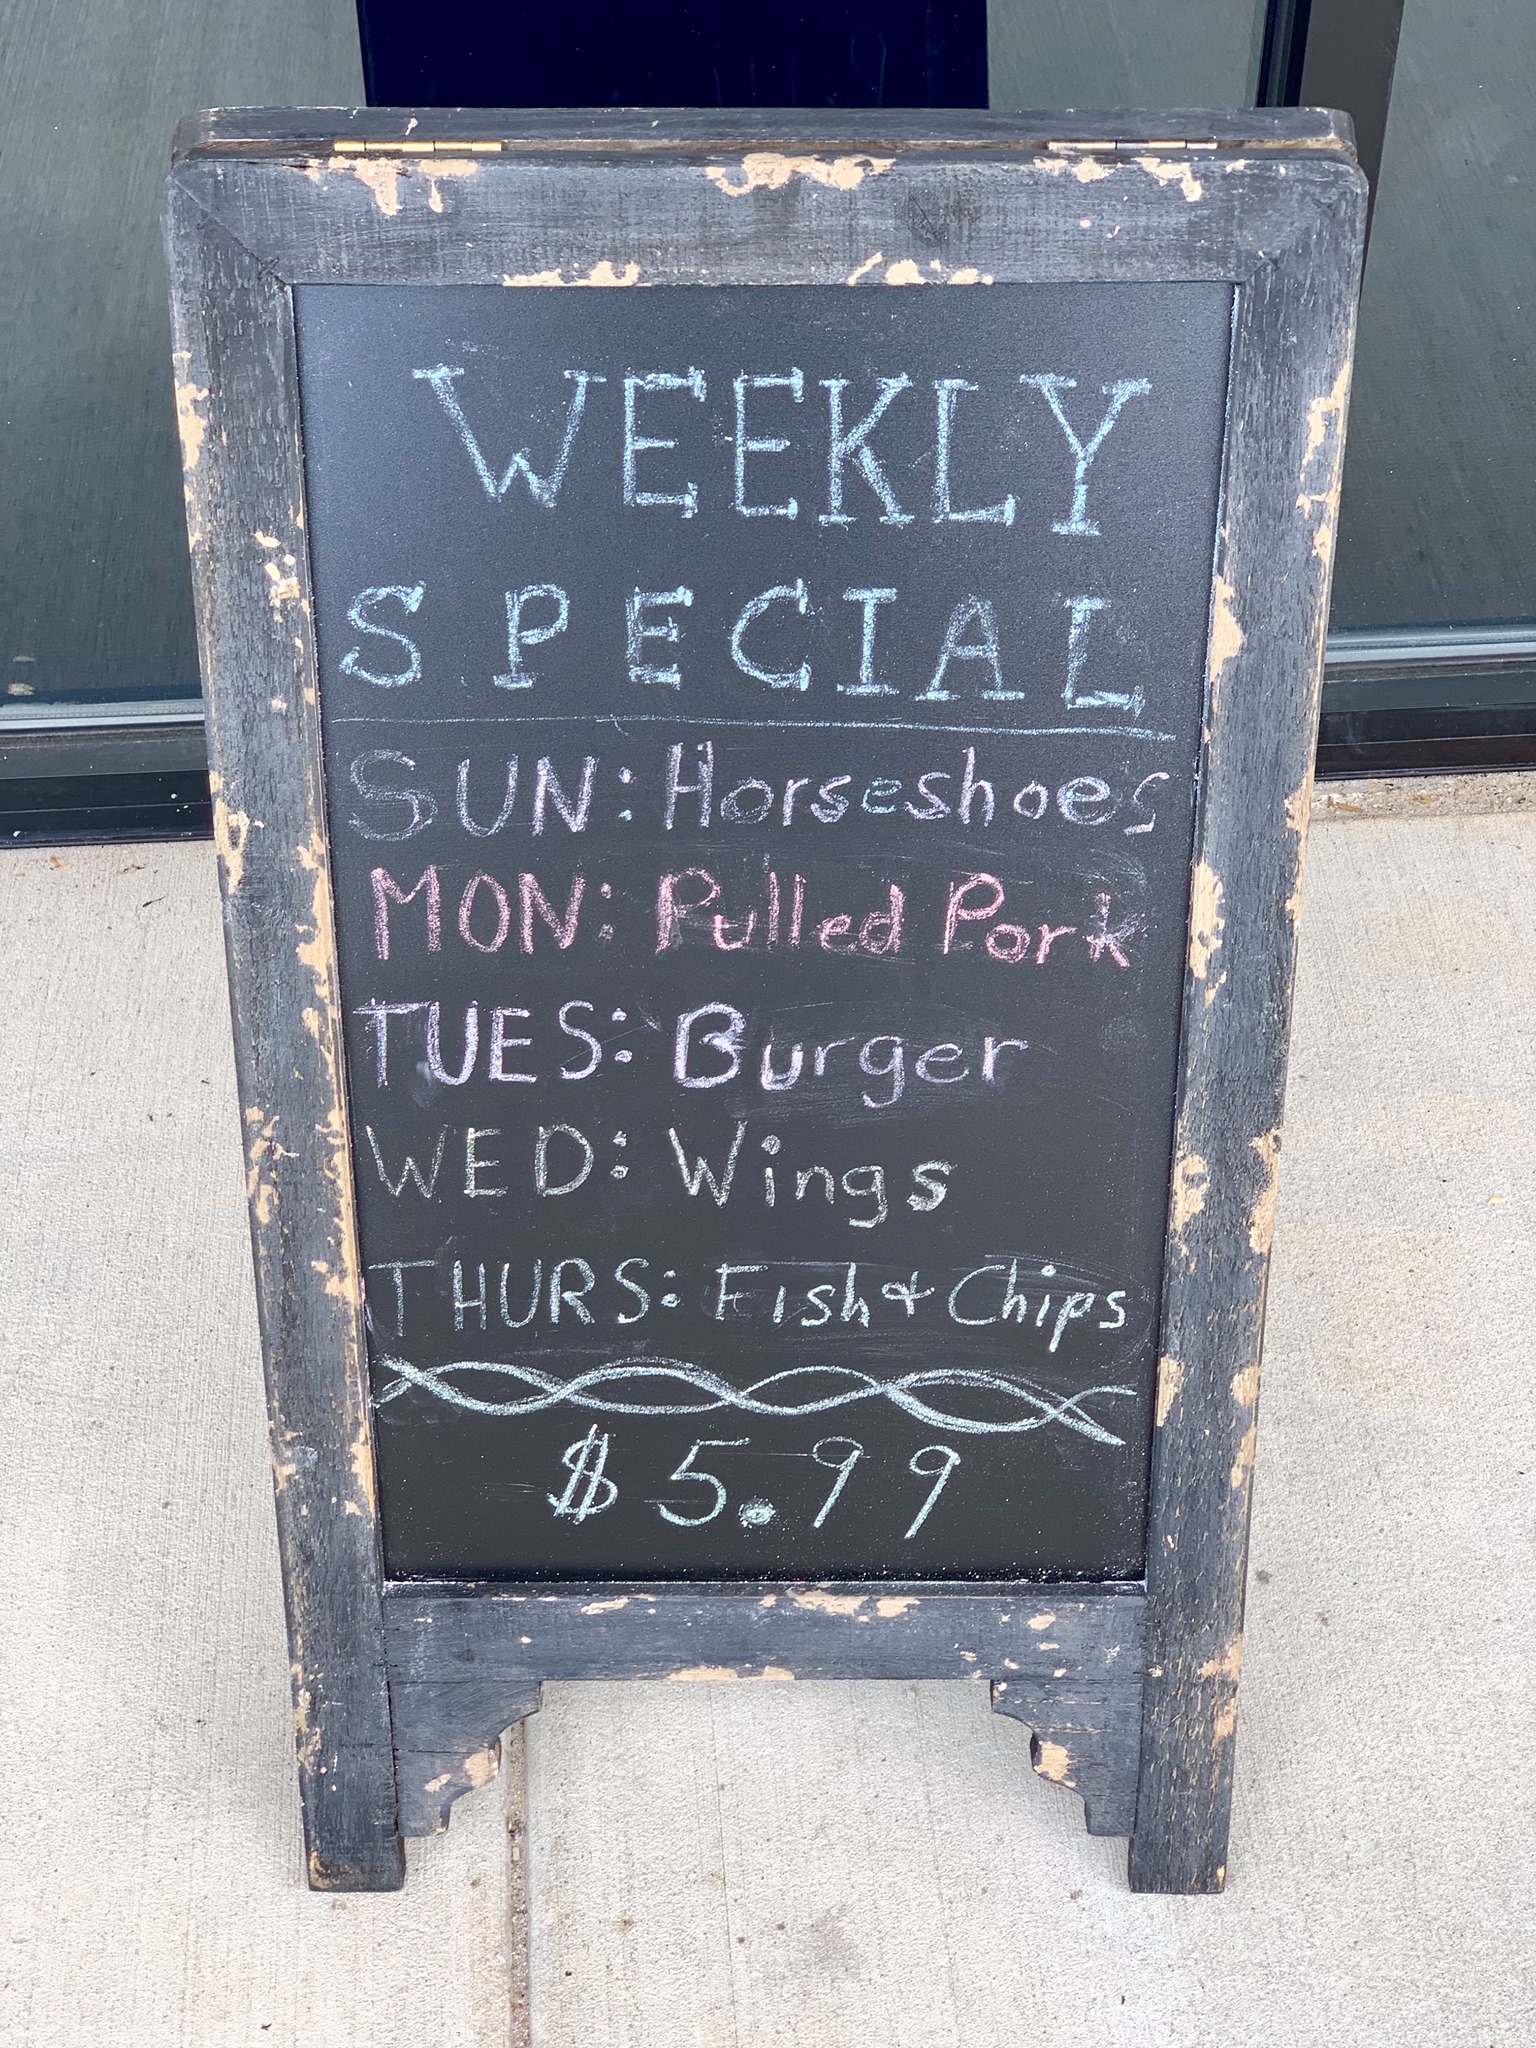 WEEKLY
SPECIAL
SUN: Horseshoes
MON: Pulled Pork
TUES: Burger
WED: Wings
THURS: Fish & Chips
$5.99